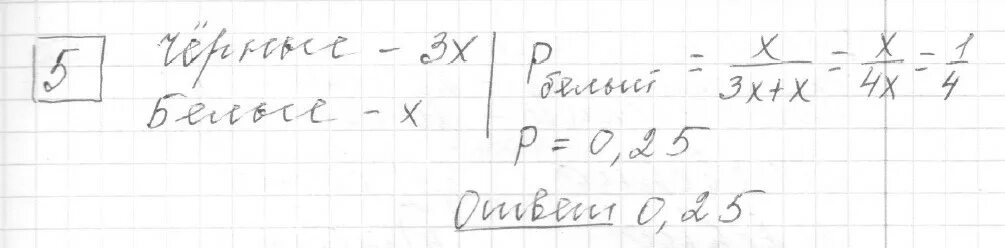 5
Чёрные - 3x
Белые - x
P белый = x/(3x+x) = x/4x = 1/4
P = 0,25
Ответ 0,25